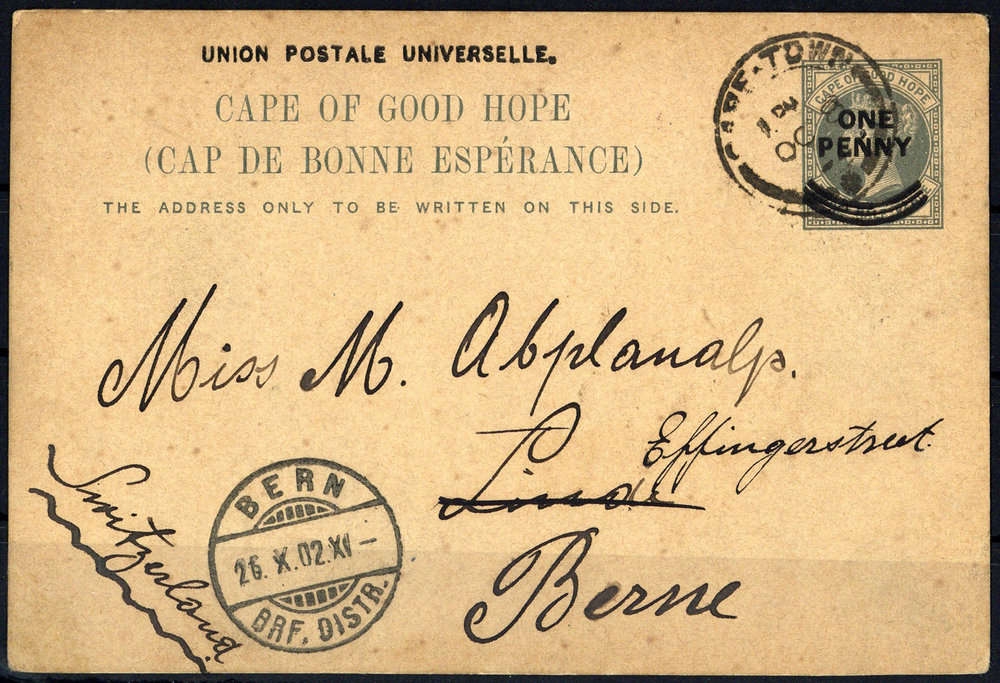 UNION POSTALE UNIVERSELLE.
CAPE OF GOOD HOPE
(CAP DE BONNE ESPÉRANCE)
THE ADDRESS ONLY TO BE WRITTEN ON THIS SIDE.
CAPE·TOWN
OC
CAPE OF GOOD HOPE
ONE
PENNY
Miss M. Abplanalp.
Effingerstreet
Berne
Switzerland
BERN
26. X. 02. XI –
BRF. DISTR.